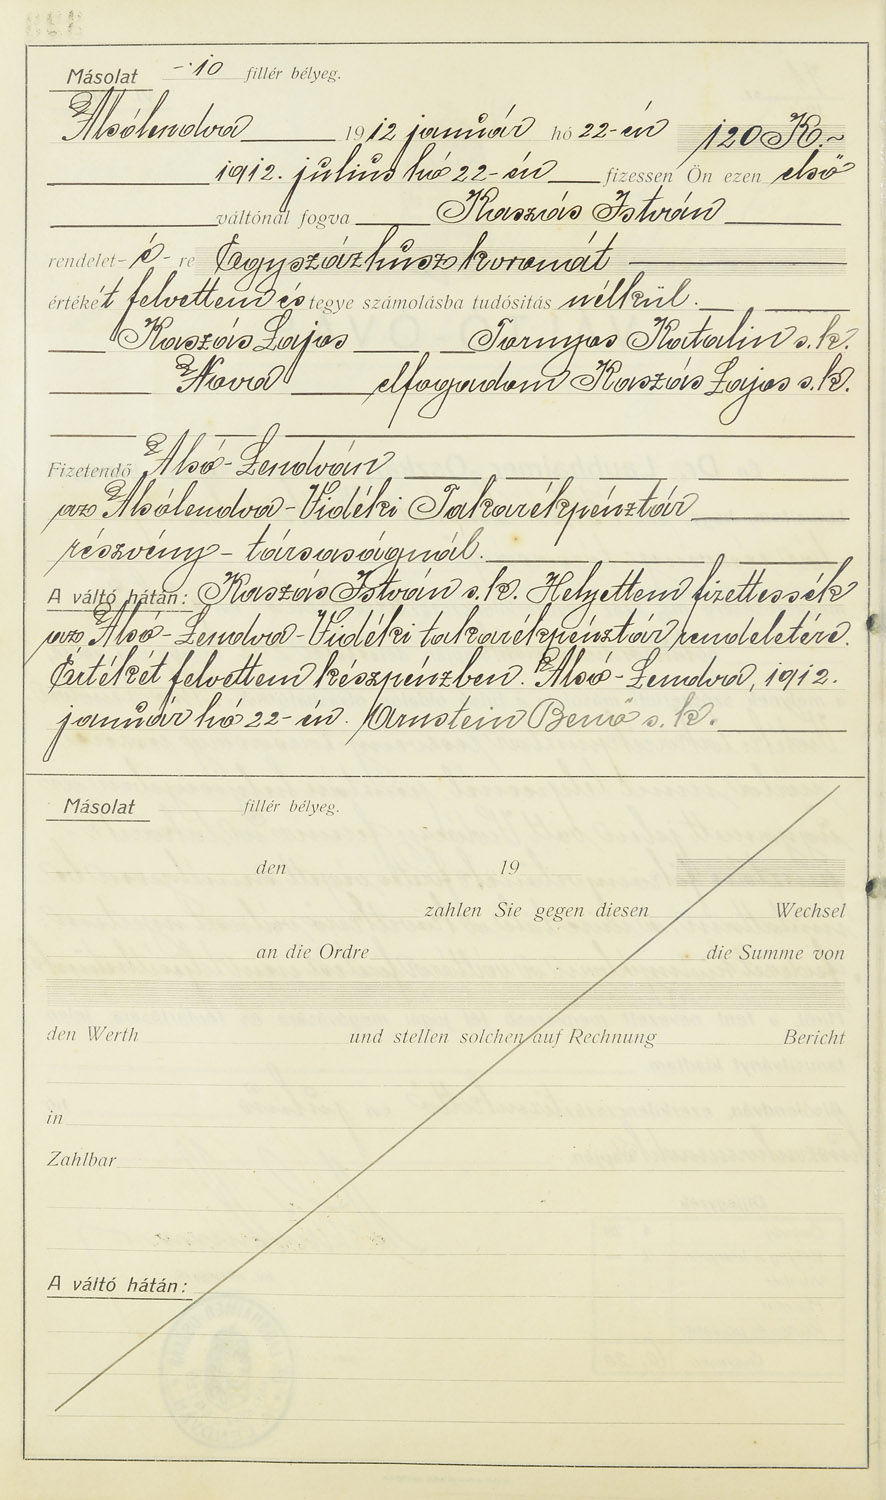 Másolat -·10 fillér bélyeg.
Alsólendva 1912 január hó 22-én 120 K.~
1912. július hó 22-én fizessen Ön ezen első
váltónál fogva Kaszás István
rendelet- é- re Egyszázhúsz koronát
értékét felvettem és tegye számolásba tudósitás nélkül.
Kaszás Lajos Tornyos Katalin s.k.
Nova elfogadom Kaszás Lajos s.k.
Fizetendő Alsó-Lendván
az Alsólendva-Vidéki Takarékpénztár
részvény-társaságnál.
A váltó hátán: Kaszás István s.k. Helyettem fizettessék
az Alsó-Lendva-Vidéki takarékpénztár rendeletére.
Értékét felvettem készpénzben. Alsó-Lendva, 1912.
január hó 22-én. Arnstein Benő s.k.
Másolat fillér bélyeg.
den 19
zahlen Sie gegen diesen Wechsel
an die Ordre die Summe von
den Werth und stellen solchen auf Rechnung Bericht
in
Zahlbar
A váltó hátán: